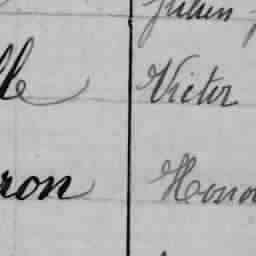 Julien
lle Victor
ron Honor